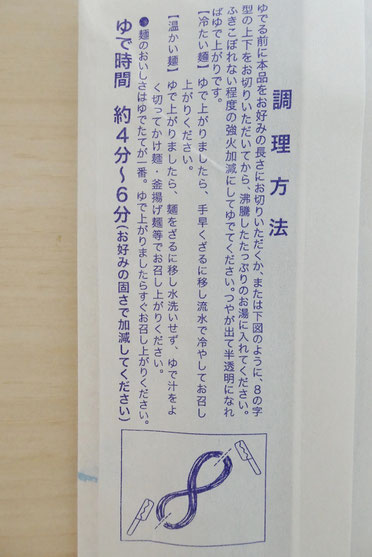 調理方法
ゆでる前に本品をお好みの長さにお切りいただくか、または下図のように、8の字
型の上下をお切りいただいてから、沸騰したたっぷりのお湯に入れてください。
ふきこぼれない程度の強火加減にしてゆでてください。つやが出て半透明になれ
ばゆで上がりです。
【冷たい麺】ゆで上がりましたら、手早くざるに移し流水で冷やしてお召し
上がりください。
【温かい麺】ゆで上がりましたら、麺をざるに移し水洗いせず、ゆで汁をよ
く切ってかけ麺・釜揚げ麺等でお召し上がりください。
●麺のおいしさはゆでたてが一番。ゆで上がりましたらすぐお召し上がりください。
ゆで時間 約4分〜6分(お好みの固さで加減してください)